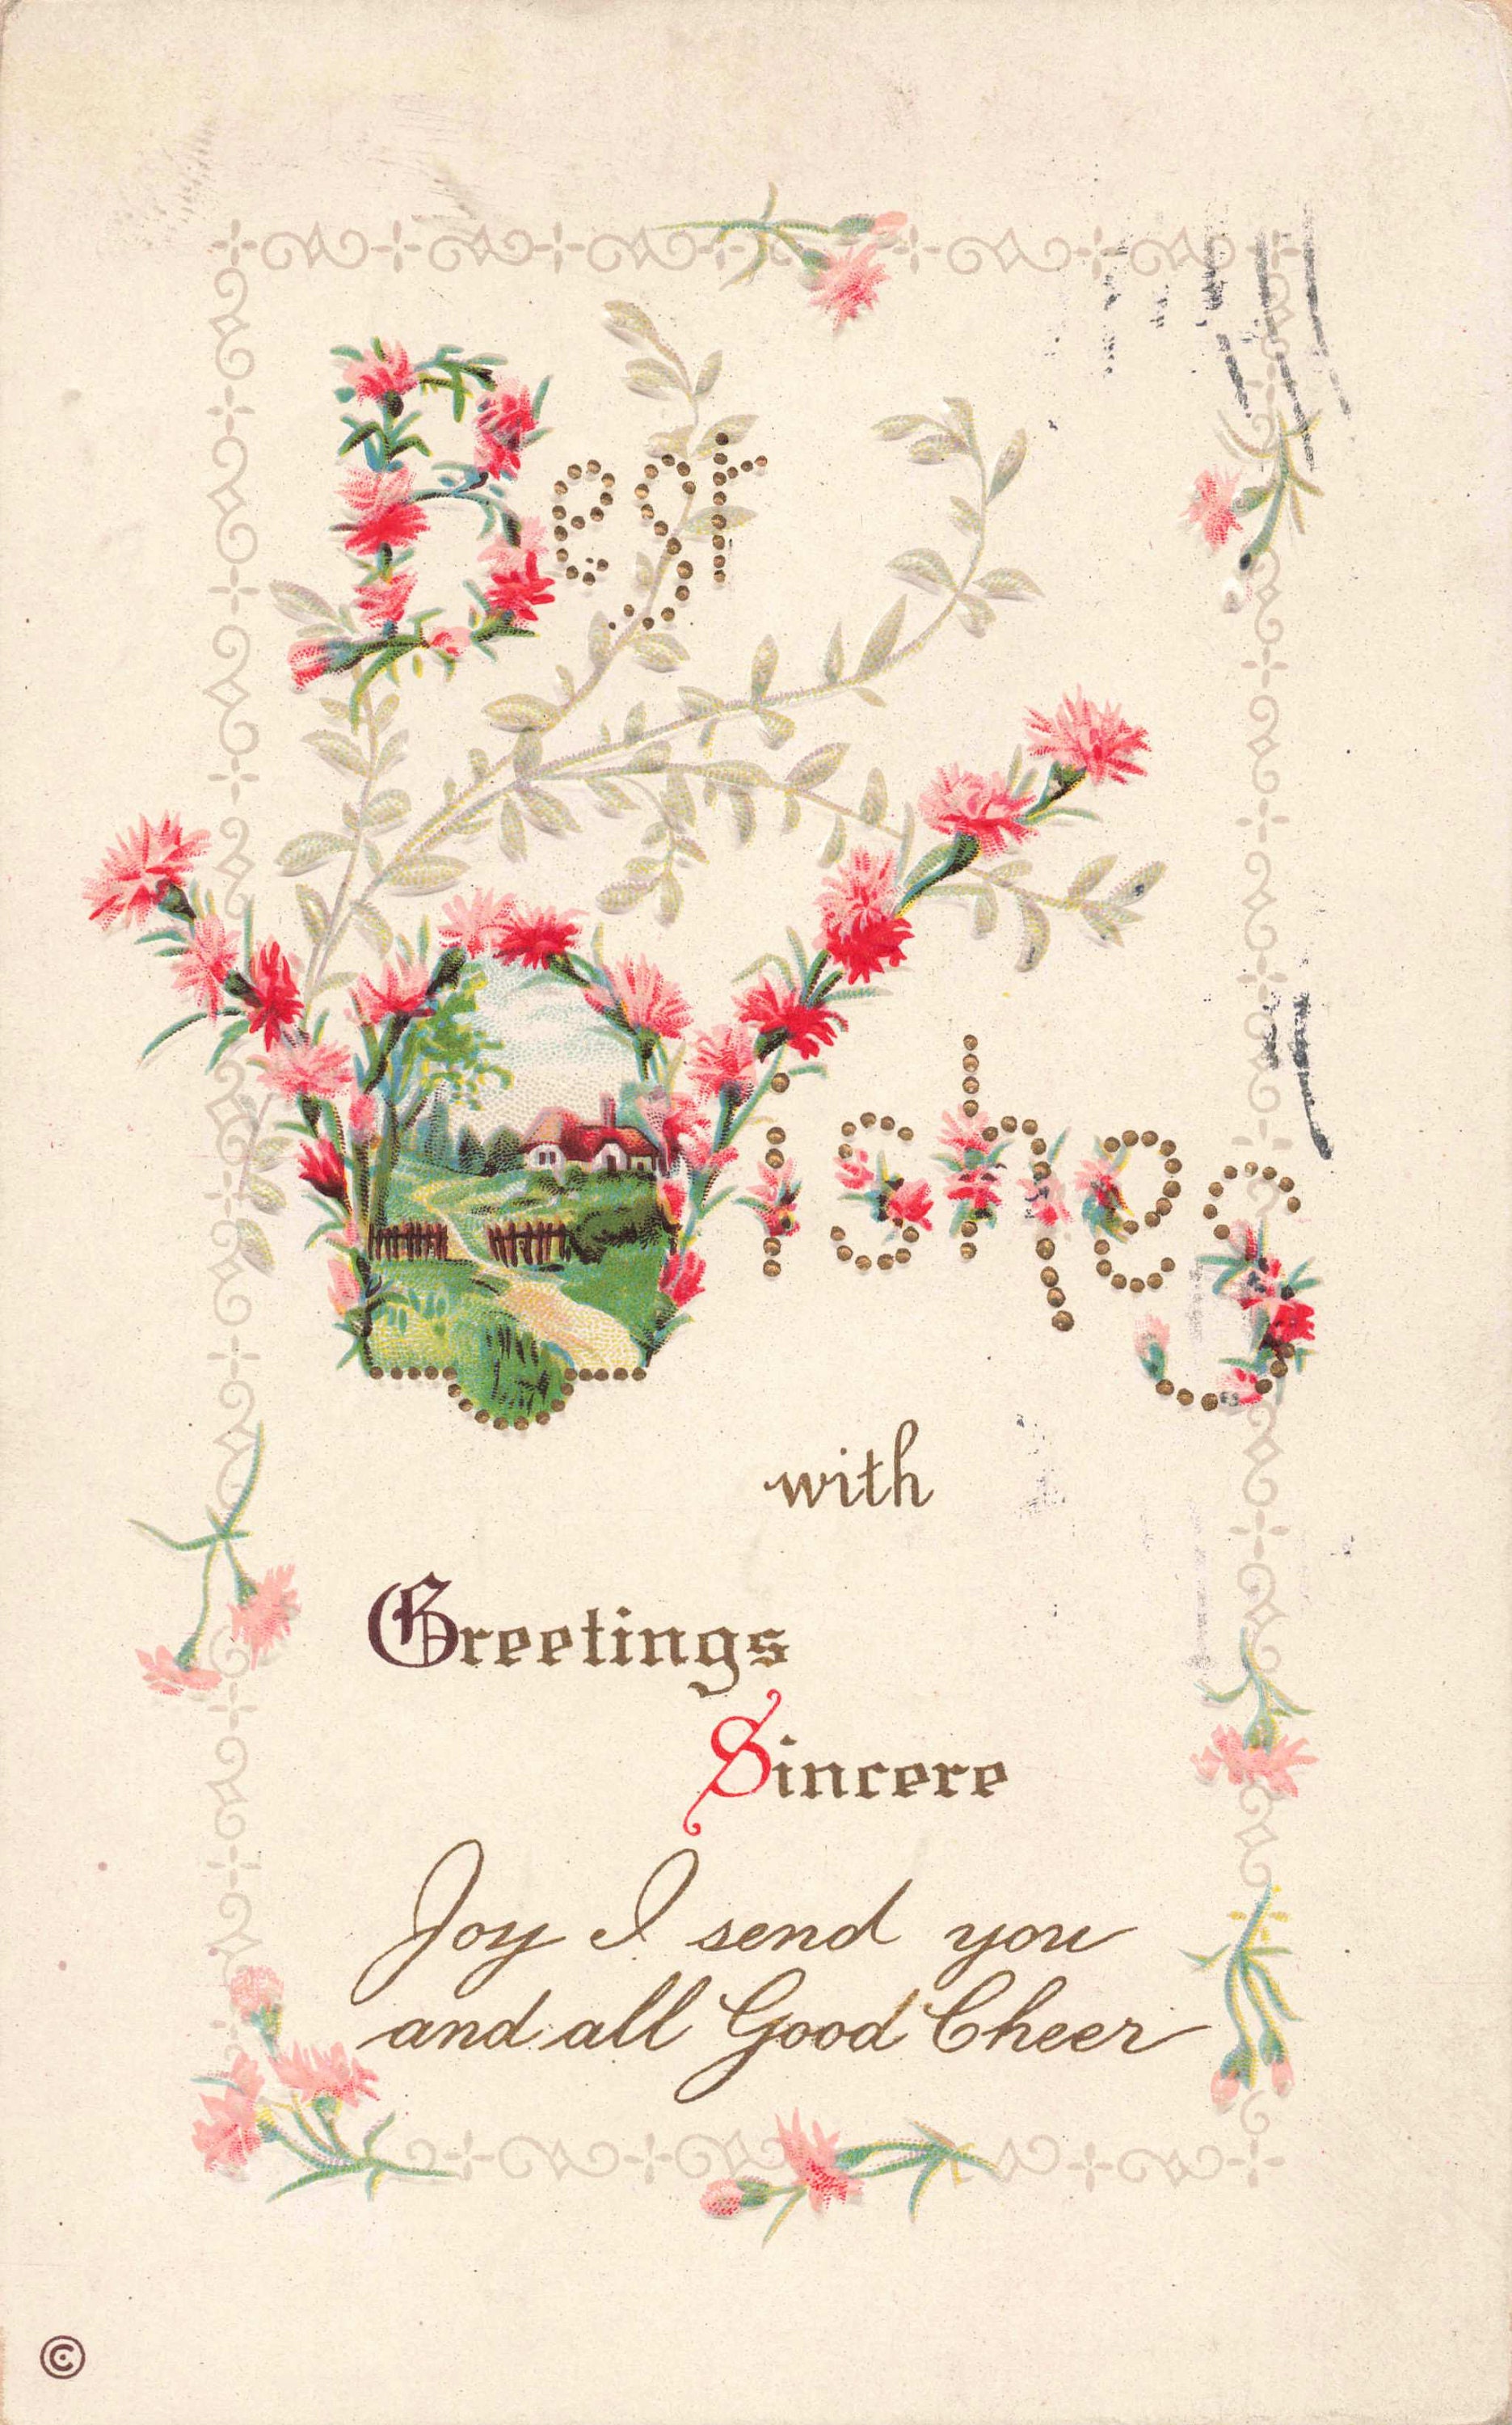 Best
Wishes
with
Greetings
Sincere
Joy I send you
and all Good Cheer
©